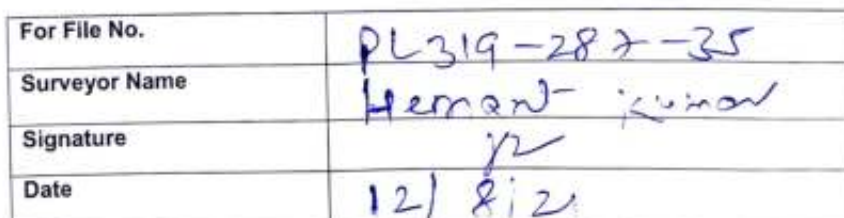 For File No. PL319-287-35
Surveyor Name Hemant Kumar
Signature
Date 12/8/21